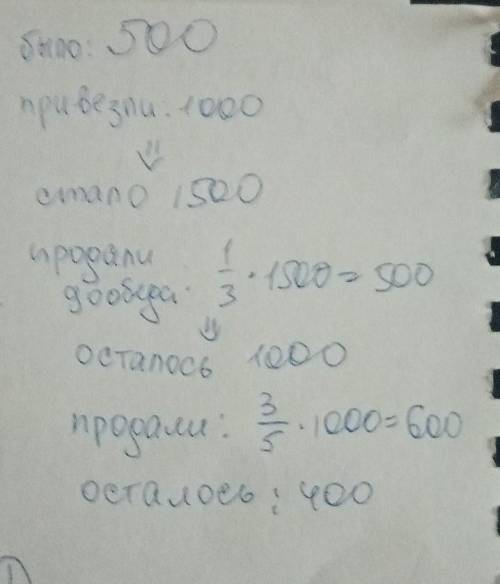 было: 500
привезли: 1000
⇓
стало 1500
продали
до обеда: 1/3 · 1500 = 500
⇓
осталось 1000
продали: 3/5 · 1000 = 600
осталось: 400